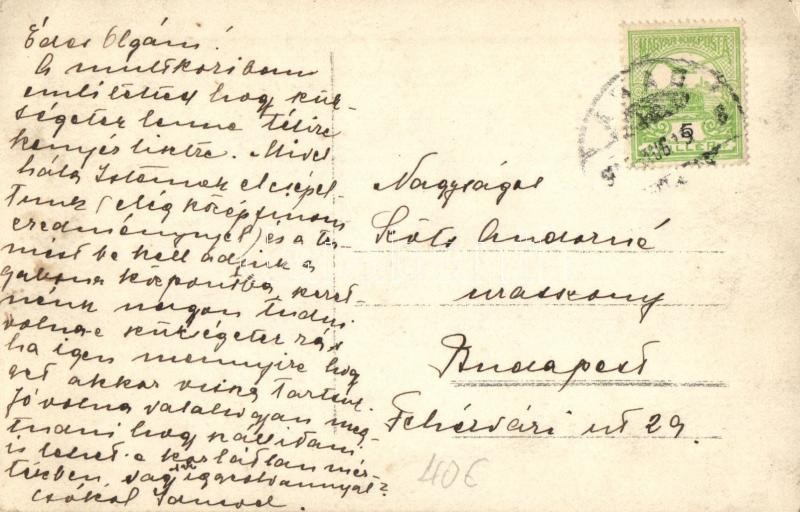 Édes Olgám!
A multkoriban
emlitetted hogy szük-
ségetek lenne télire
kenyér lisztre. Mivel
hála Istennek elcsépel-
tünk (elég középfinom
eredménynyel) és a ter-
mést be kell adjuk a
gabona központba, szeret-
nénk nagyon tudni
volna-e szükségetek rá s
ha igen mennyire hogy
azt akkor vissza tartsuk.
Jó volna valahogyan meg-
tudni hogy szállitani
is lehet-e korlátlan mér-
tékben, vagy igazolvánnyal?
csókol
MAGYAR KIR. POSTA
6
FILLÉR
Nagyságos
Andorné
urasszony
Budapest
Fehérvári ut 29.
40€